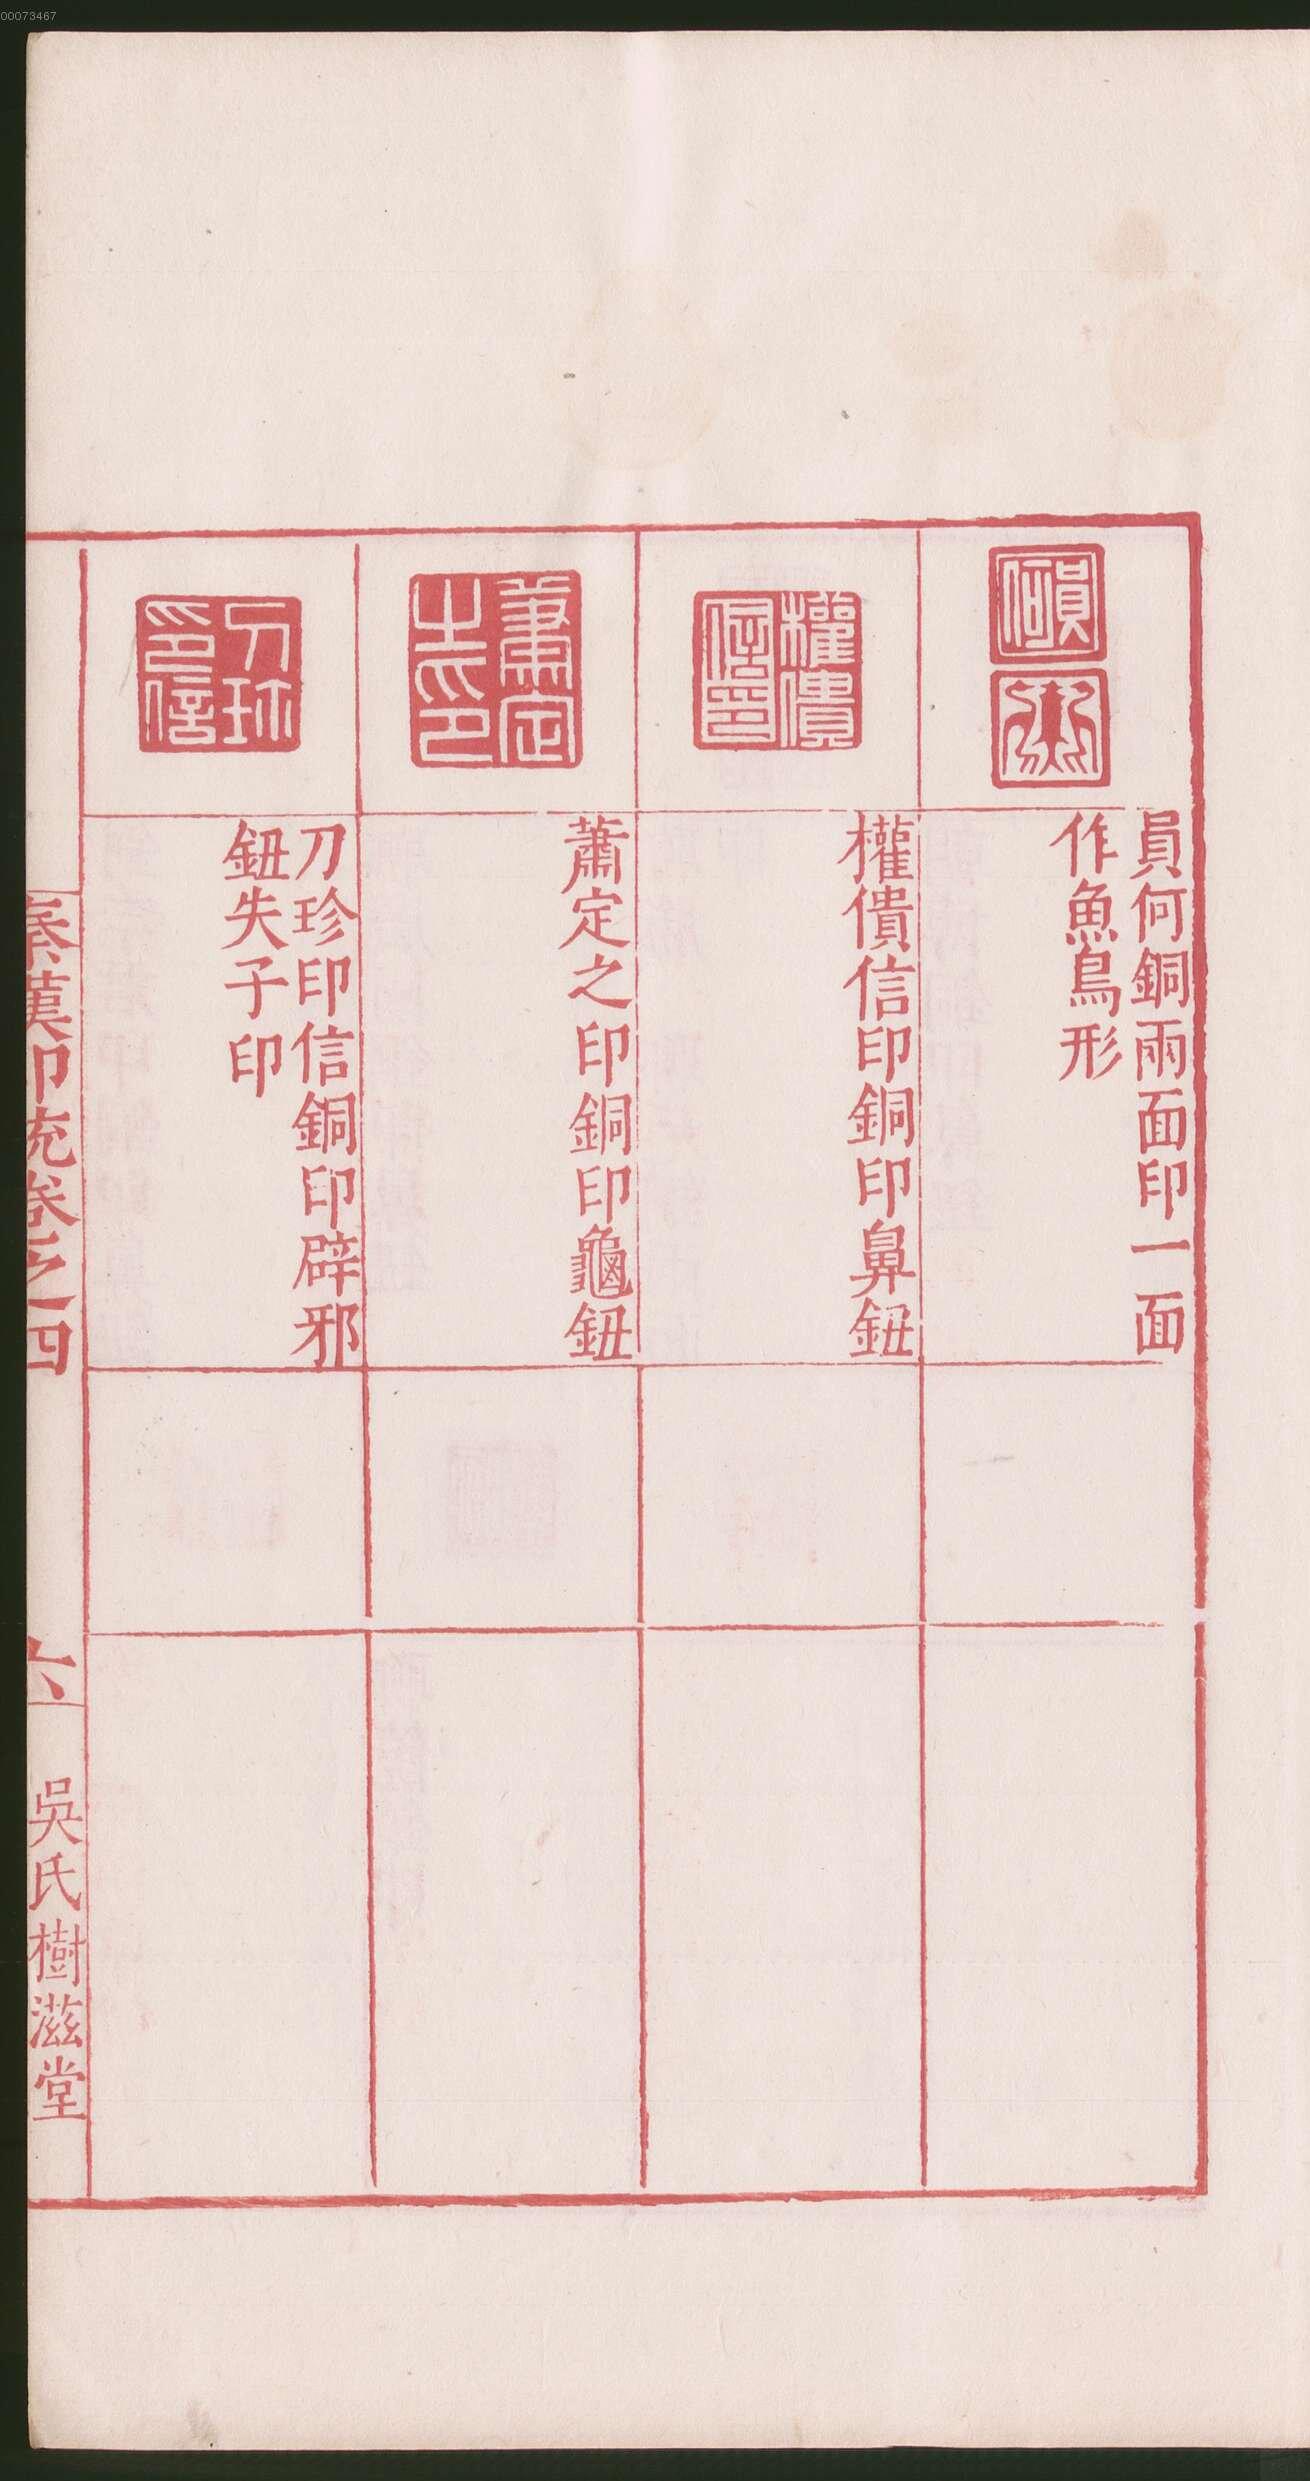 00073467
員何
員何銅兩面印一面
作魚鳥形
權僓
信印
權僓信印銅印鼻鈕
蕭定
之印
蕭定之印銅印龜鈕
刀珍
印信
刀珍印信銅印辟邪
鈕失子印
秦漢印统卷之四
六
吳氏樹滋堂